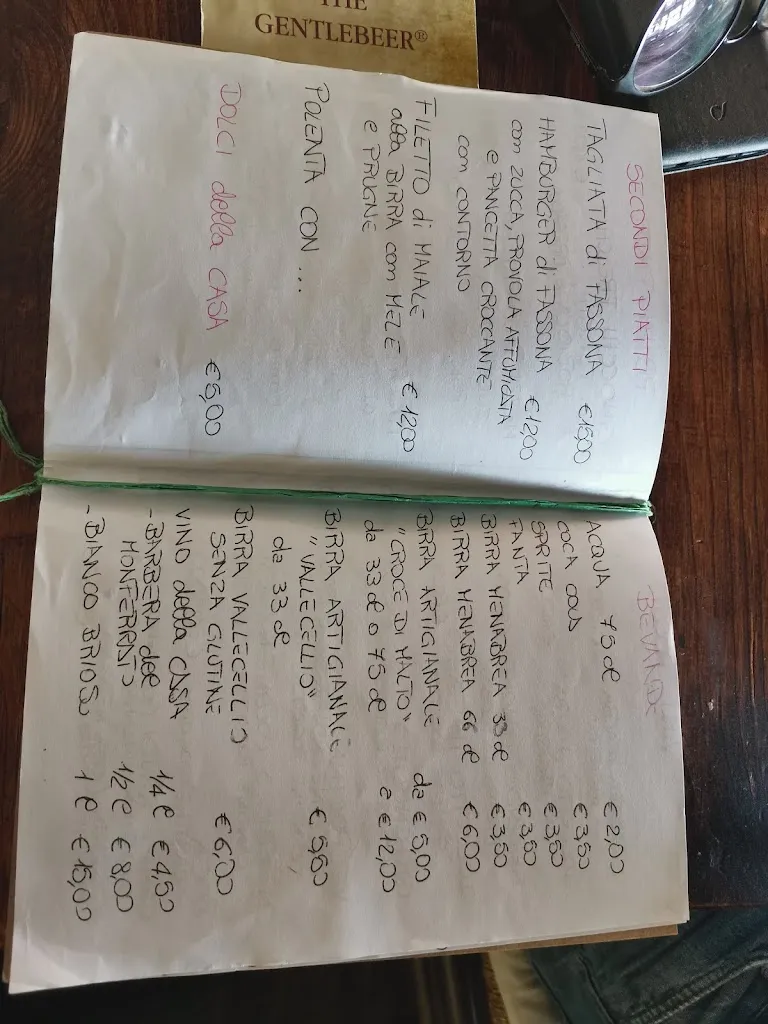 THE
GENTLEBEER®
SECONDI PIATTI
TAGLIATA di FASSONA €15,00
HAMBURGER di FASSONA €12,00
con ZUCCA, PROVOLA AFFUMICATA
e PANCETTA CROCCANTE
con CONTORNO
FILETTO di MAIALE
alla BIRRA con MELE
e PRUGNE € 12,00
POLENTA CON ...
DOLCI della CASA € 5,00
BEVANDE
ACQUA 75 cl € 2,00
COCA COLA € 3,50
SPRITE € 3,50
FANTA € 3,50
BIRRA MENABREA 33 cl € 3,50
BIRRA MENABREA 66 cl € 6,00
BIRRA ARTIGIANALE da € 5,00
"CROCE DI MALTO"
da 33 cl o 75 cl a € 12,00
BIRRA ARTIGIANALE
"VALLECELLIO" € 5,50
da 33 cl
BIRRA VALLECELLIO
SENZA GLUTINE € 6,00
VINO della CASA
- BARBERA del 1/4 l € 4,50
MONFERRATO 1/2 l € 8,00
- BIANCO BRIOSO 1 l € 15,00